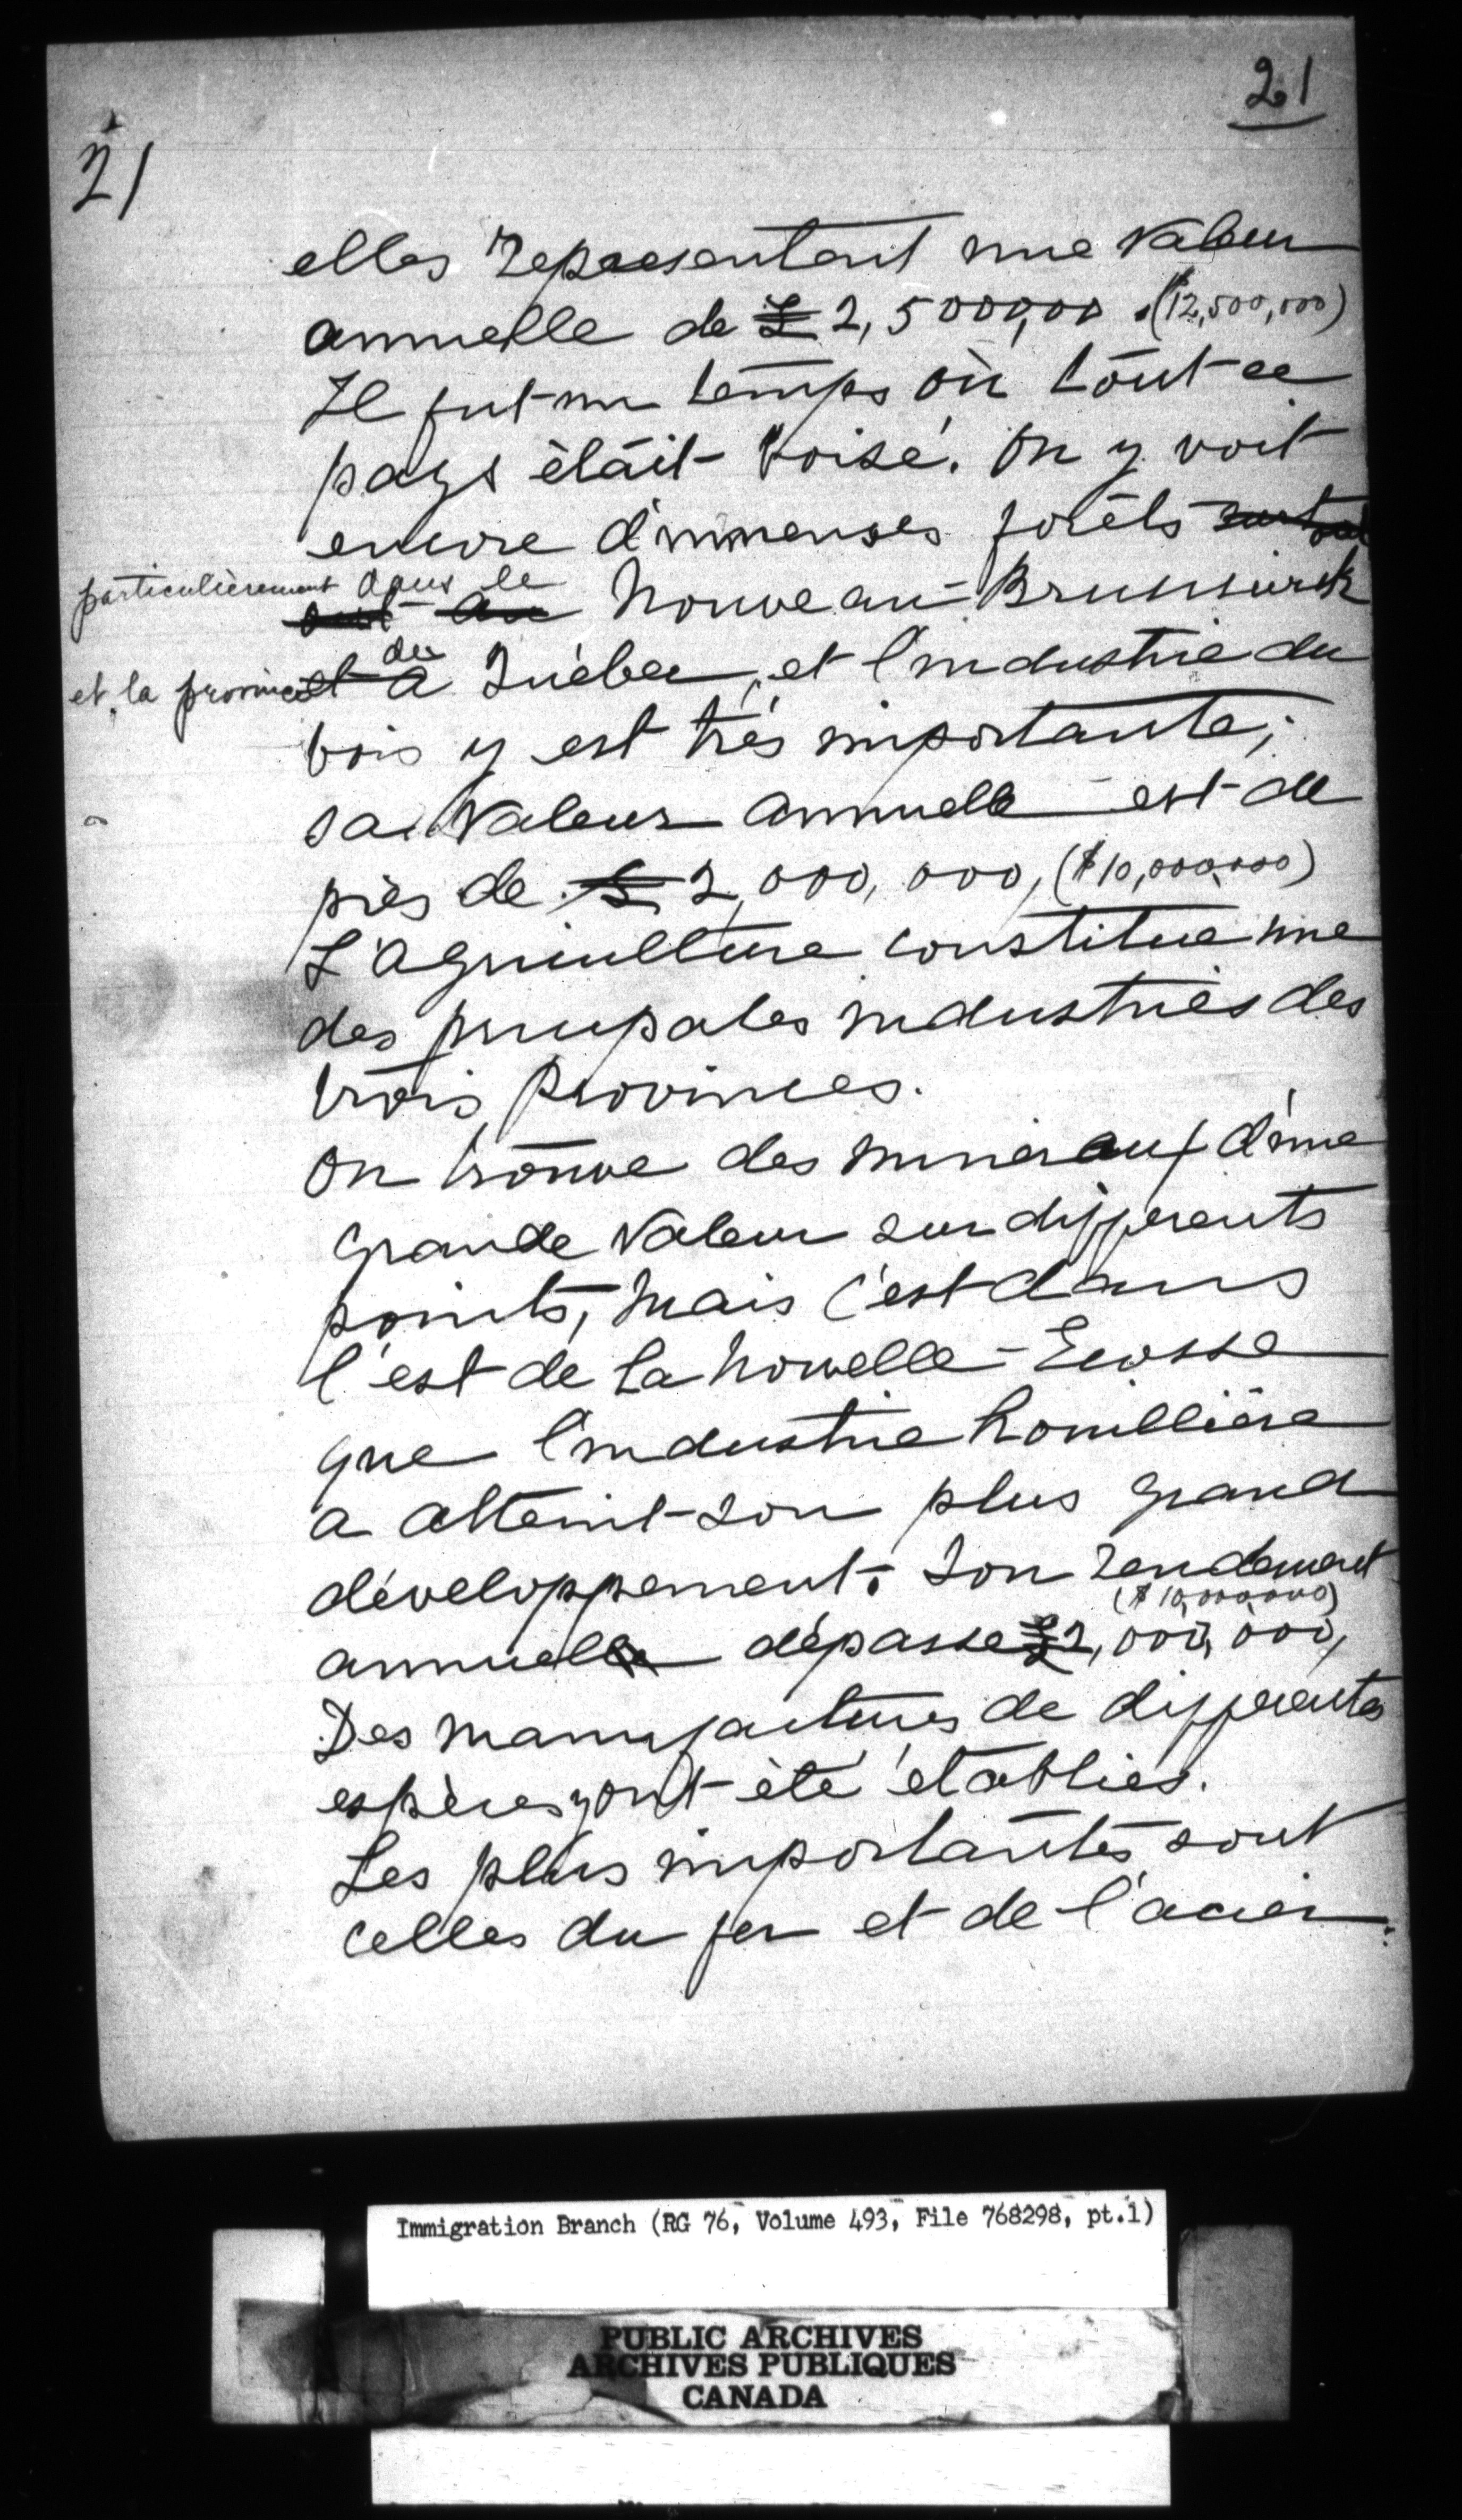 21
21
elles representent une valeur
annuelle de £ 2,5000,00 . ($12,500,000)
Il fut un temps où tout ce
pays était boisé. On y voit
encore d'immenses forêts surtout
particulièrement dans le
au Nouveau-Brunswick
et la province de
et à Québec, et l'industrie du
bois y est très importante;
sa valeur annuelle est de
près de £ 2,000,000, ($10,000,000)
L'agriculture constitue une
des principales industries des
trois provinces.
On trouve des mineraux d'une
grande valeur sur differents
points, mais c'est dans
l'est de la Nouvelle-Ecosse
que l'industrie houillière
a atteint son plus grand
développement. Son rendement
($10,000,000)
annuelle dépasse £2,000,000,
Des manufactures de differentes
espèces y ont été établies.
Les plus importantes sont
celles du fer et de l'acier.
Immigration Branch (RG 76, Volume 493, File 768298, pt.1)
PUBLIC ARCHIVES
ARCHIVES PUBLIQUES
CANADA